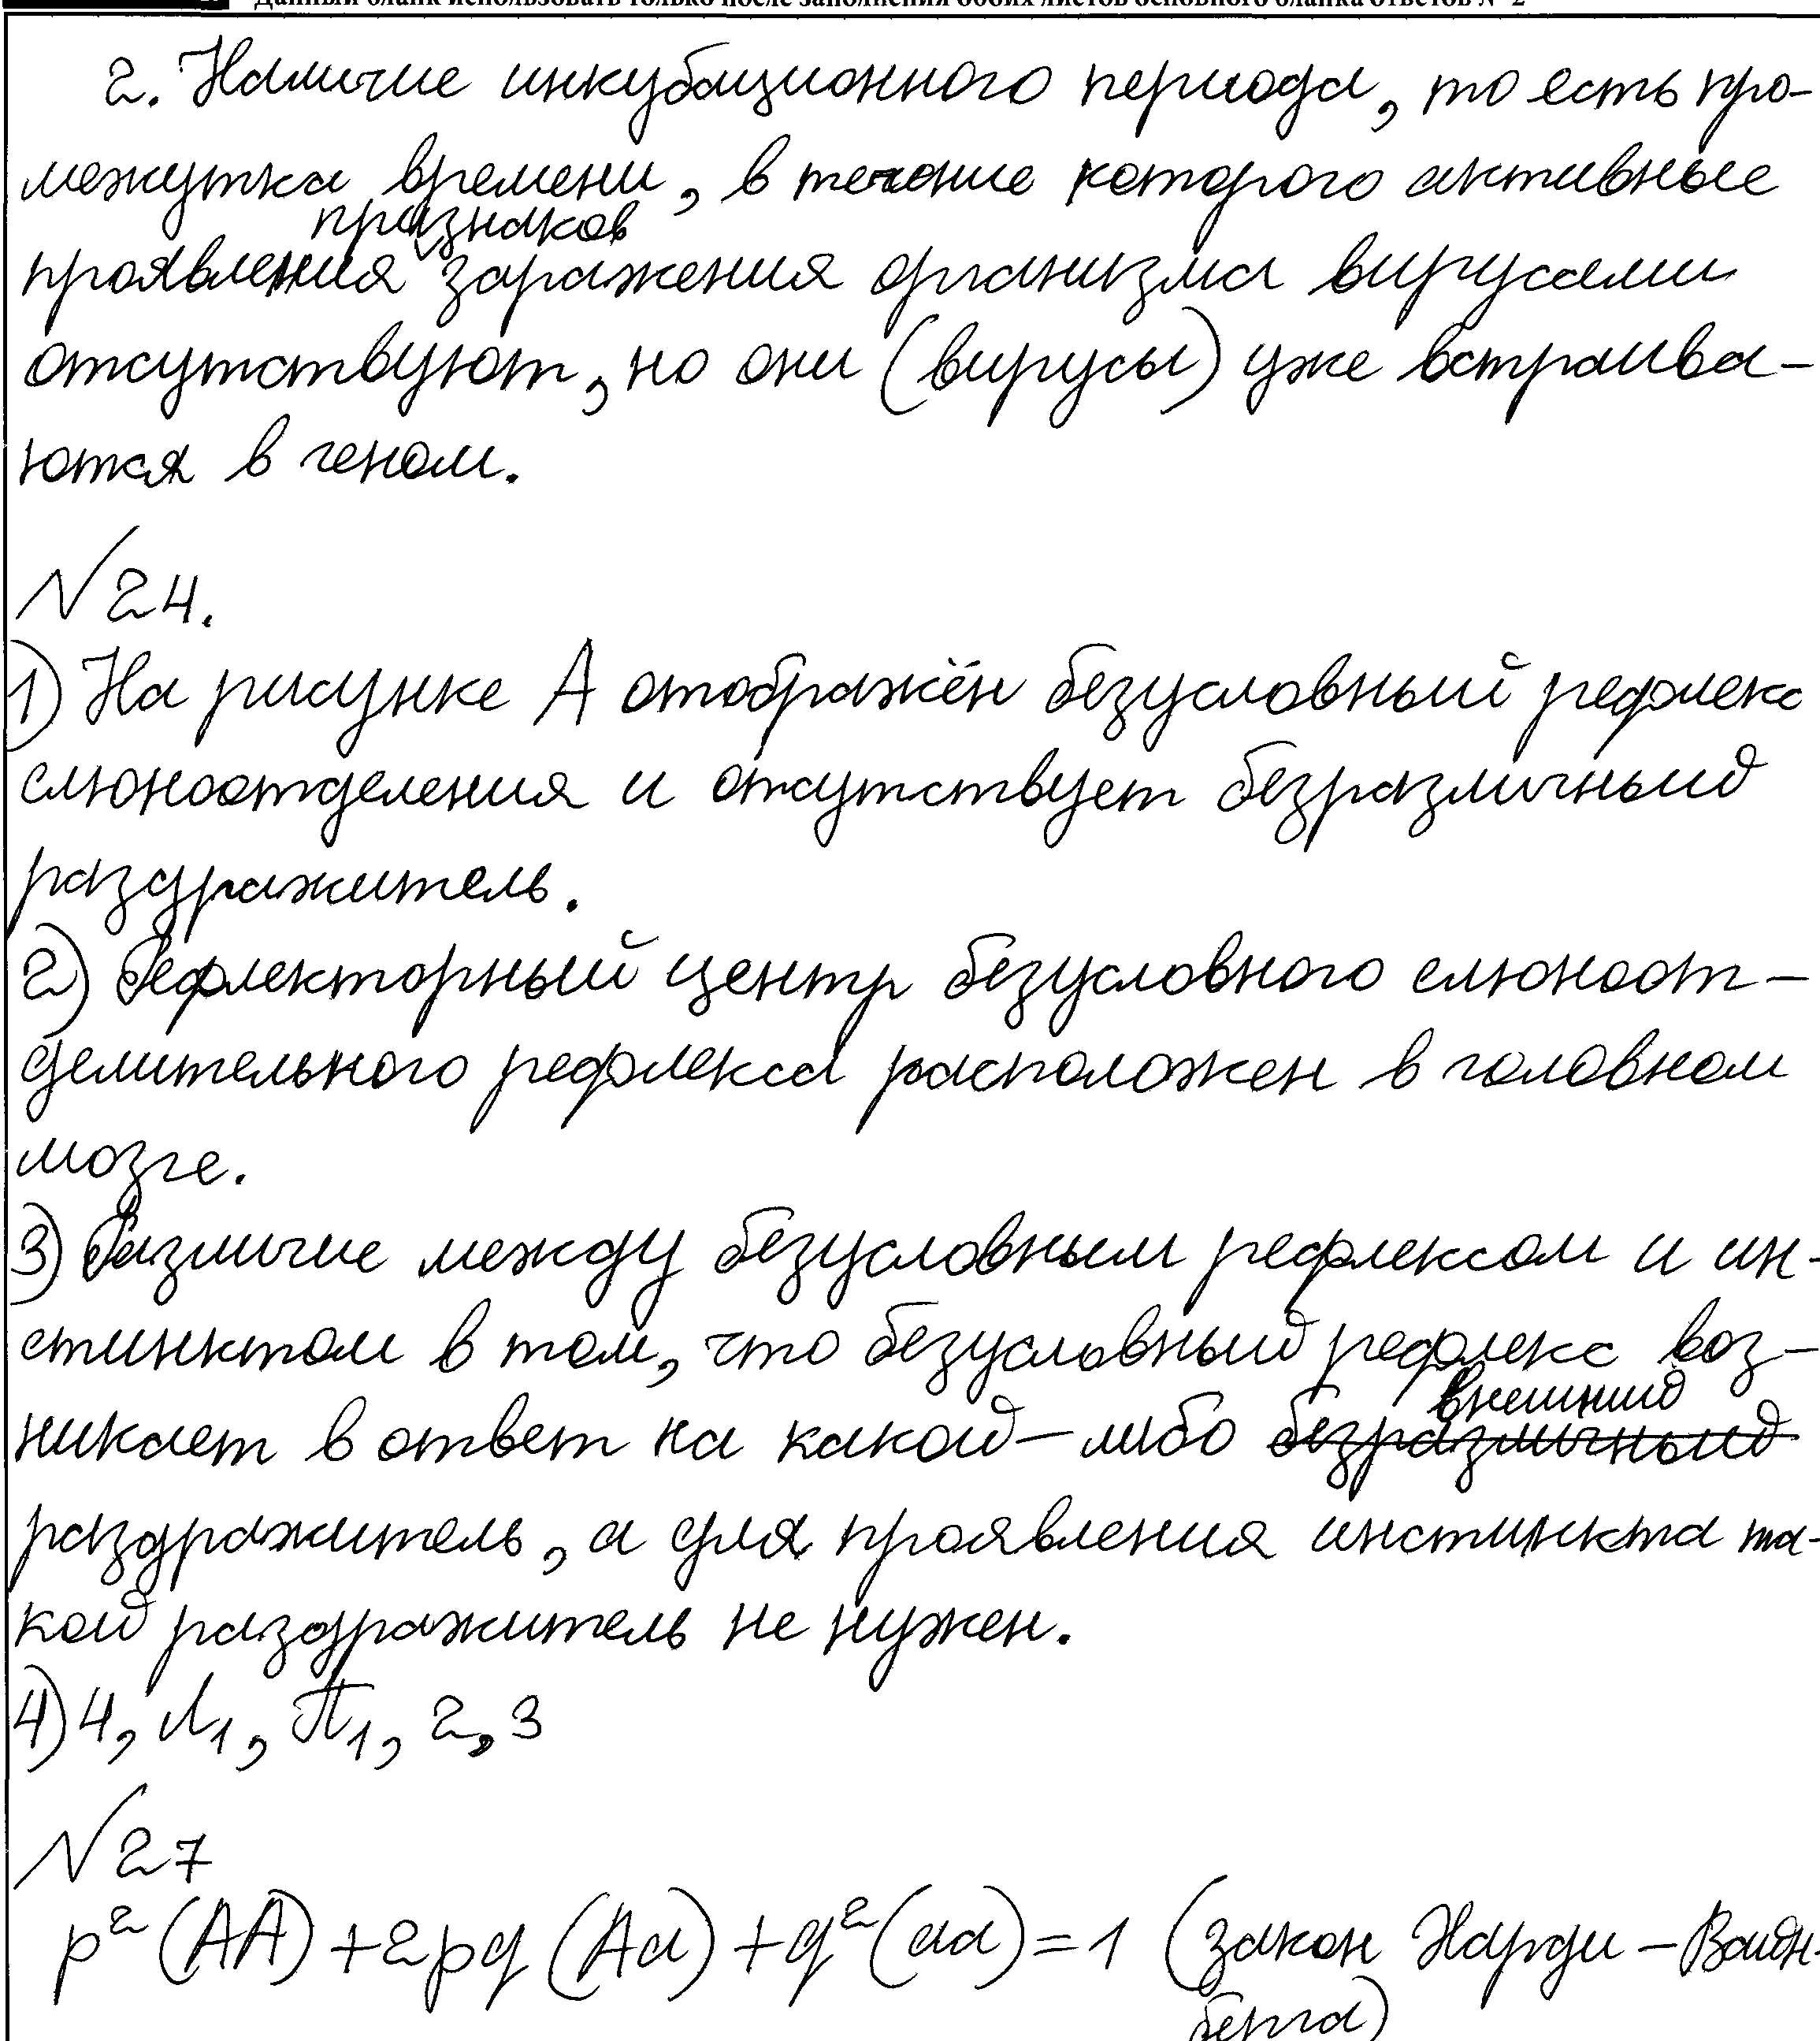 Данный бланк использовать только после заполнения обоих листов основного бланка ответов № 2
2. Наличие инкубационного периода, то есть про-
межутка времени, в течение которого активные
признаков
проявления заражения организма вирусами
отсутствуют, но они (вирусы) уже встраива-
ются в геном.
№24.
1) На рисунке А отображён безусловный рефлекс
слюноотделения и отсутствует безразличный
раздражитель.
2) Рефлекторный центр безусловного слюноот-
делительного рефлекса расположен в головном
мозге.
3) Различие между безусловным рефлексом и ин-
стинктом в том, что безусловный рефлекс воз-
внешний
никает в ответ на какой-либо безразличный
раздражитель, а для проявления инстинкта та-
кой раздражитель не нужен.
4) 4, Л1, П1, 2, 3
№27
p² (AA) + 2pq (Aa) + q² (aa) = 1 (закон Харди-Вайн-
берга)